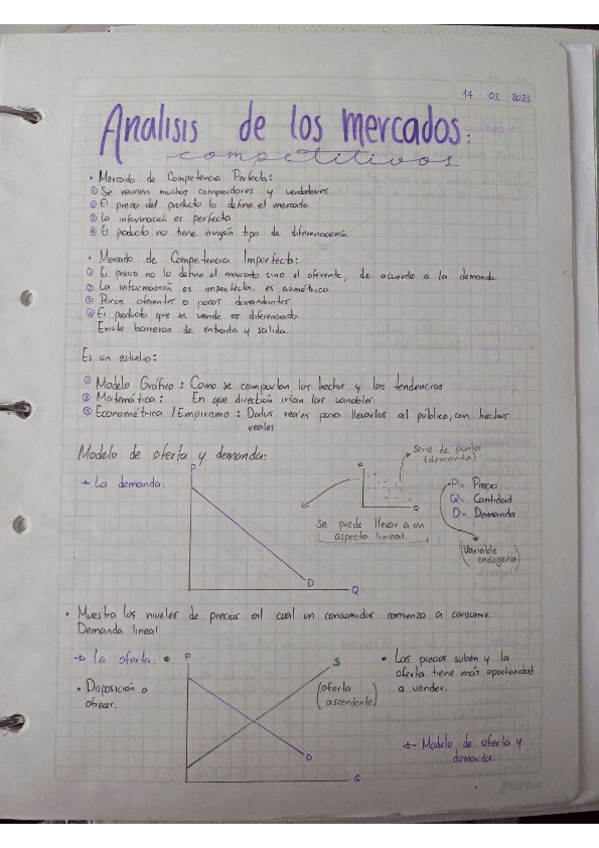 14 02 2023
Analisis de los mercados:
competitivos
• Mercado de Competencia Perfecta:
① Se reunen muchos compradores y vendedores
② El precio del producto lo define el mercado
③ La información es perfecta
④ El producto no tiene ningún tipo de diferenciación
• Mercado de Competencia Imperfecta:
① El precio no lo define el mercado sino el oferente, de acuerdo a la demanda
② La información es imperfecta. es asimétrica.
③ Pocos oferentes o pocos demandantes
④ El producto que se vende es diferenciado
Existe barreras de entrada y salida.
Es un estudio:
① Modelo Gráfico: Como se comportan los hechos y las tendencias
② Matemática: En que dirección irían las variables
③ Econométrica / Empirismo: Datos reales para llevarlos al público, con hechos
reales
Modelo de oferta y demanda:
→ La demanda:
P
D
Q
Serie de puntos
(demanda)
Q
Se puede llevar a un
aspecto lineal
P= Precio
Q= Cantidad
D= Demanda
(Variable
endogena)
• Muestra los niveles de precios al cual un consumidor comienza a consumir.
Demanda lineal
→ La oferta:
P
S
D
Q
• Disposición a
ofrecer.
(oferta
ascendente)
• Los precios suben y la
oferta tiene más oportunidad
a vender.
← Modelo de oferta y
demanda.
Norma